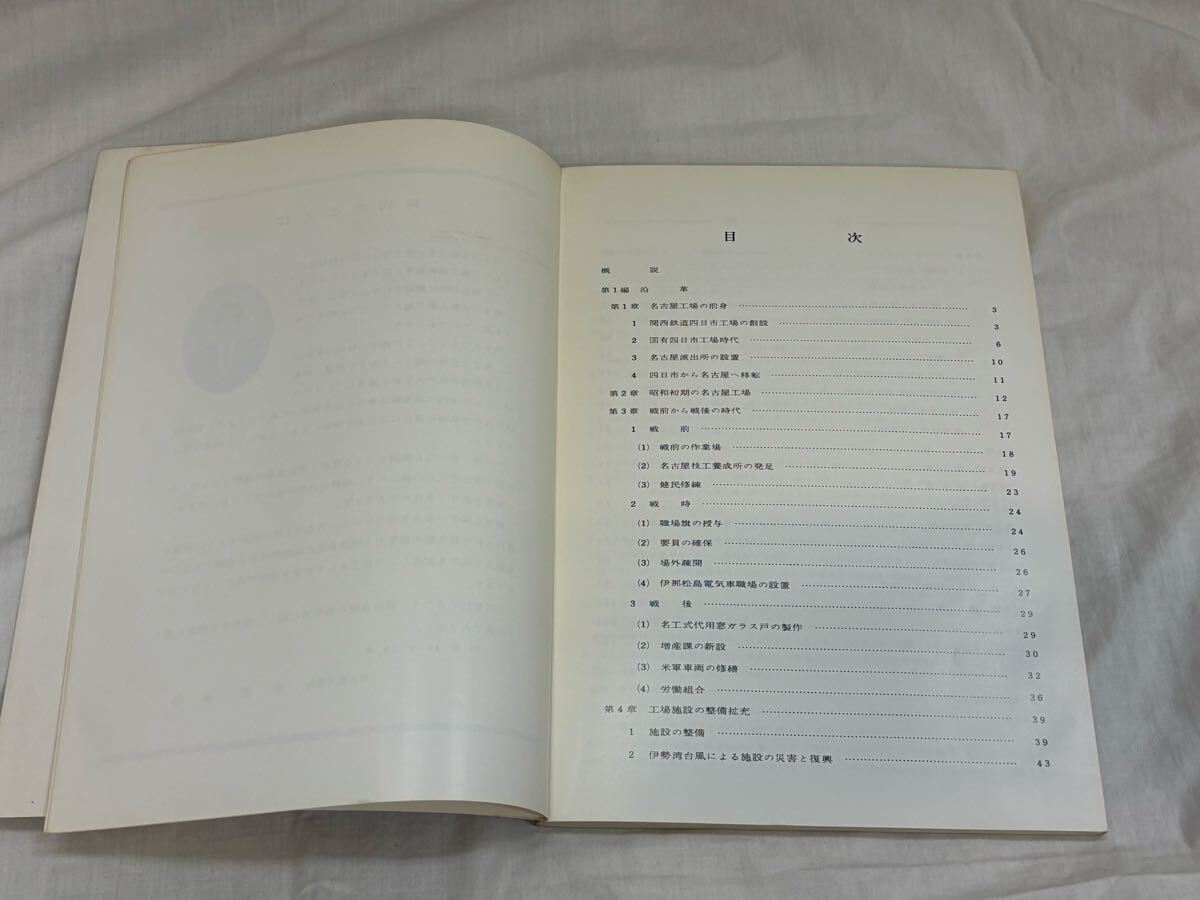 目次
概説
第1編 沿革
第1章 名古屋工場の前身 3
1 関西鉄道四日市工場の創設 3
2 国有四日市工場時代 6
3 名古屋派出所の設置 10
4 四日市から名古屋へ移転 11
第2章 昭和初期の名古屋工場 12
第3章 戦前から戦後の時代 17
1 戦前 17
(1) 戦前の作業場 18
(2) 名古屋技工養成所の発足 19
(3) 健民修練 23
2 戦時 24
(1) 職場旗の授与 24
(2) 要員の確保 26
(3) 場外疎開 26
(4) 伊那松島電気車職場の設置 27
3 戦後 29
(1) 名工式代用窓ガラス戸の製作 29
(2) 増産課の新設 30
(3) 米軍車両の修繕 32
(4) 労働組合 36
第4章 工場施設の整備拡充 39
1 施設の整備 39
2 伊勢湾台風による施設の災害と復興 43